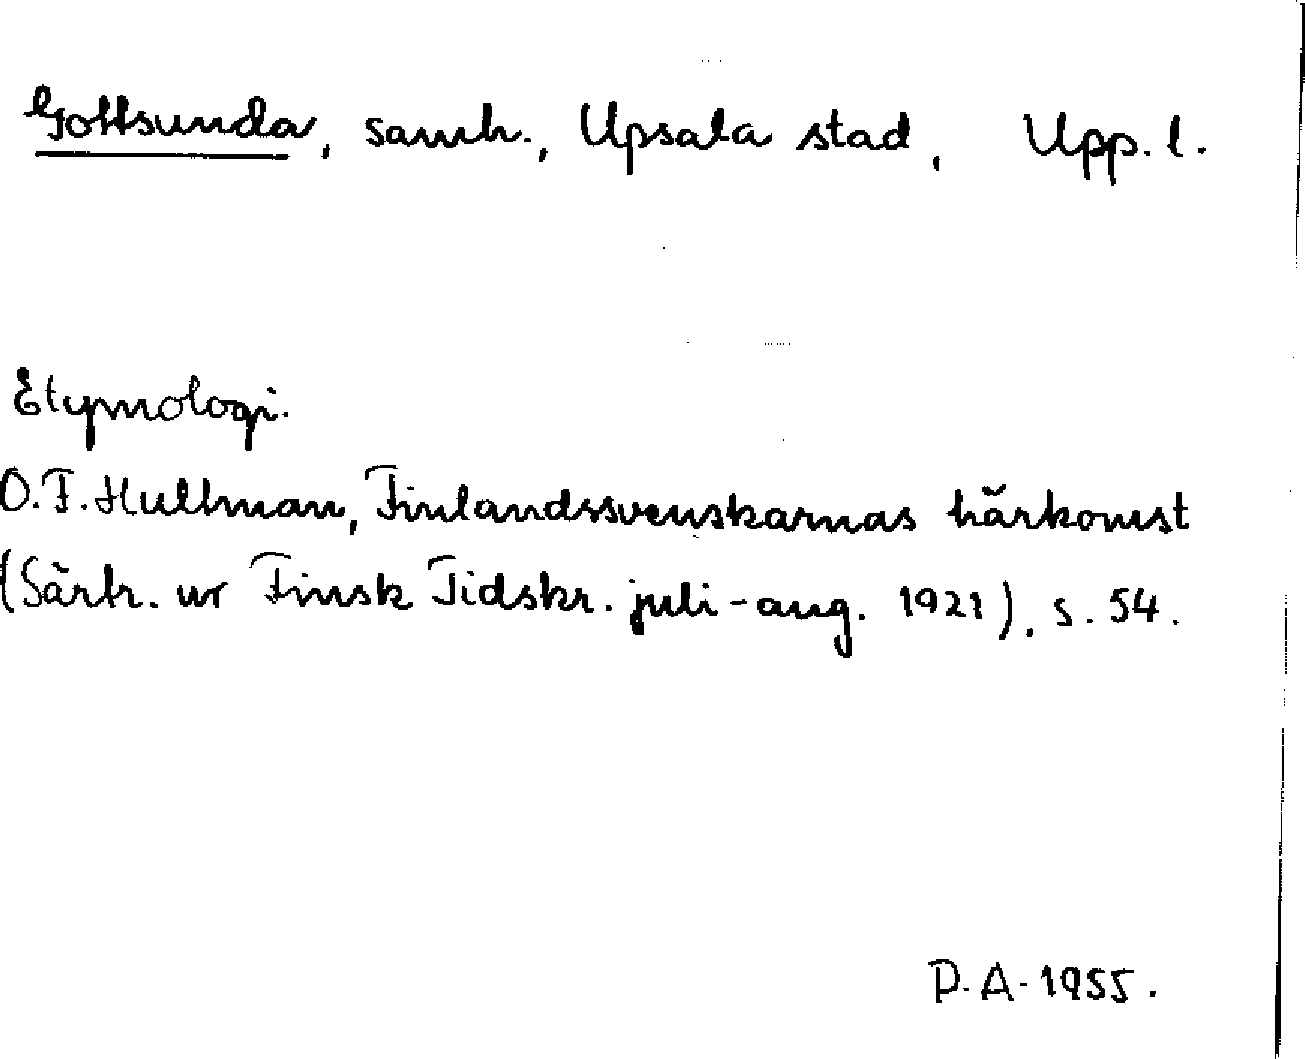 Gottsunda, samh., Upsala stad, Upp. l.
Etymologi.
O.F. Hultman, Finlandssvenskarnas härkomst
(Särtr. ur Finsk Tidskr. juli-aug. 1921), s. 54.
P.A. 1955.